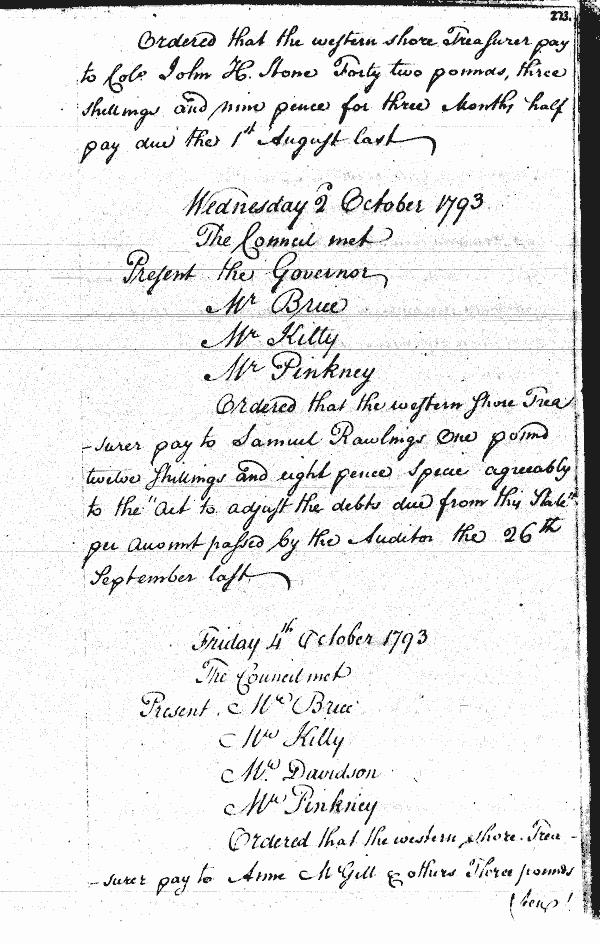 223.
Ordered that the western shore Treasurer pay
to Colo John H. Stone Forty two pounds, three
shillings and nine pence for three Months half
pay due the 1st August last
Wednesday 2 October 1793
The Council met
Present the Governor
Mr Brice
Mr Kilty
Mr Pinkney
Ordered that the western shore Trea
-surer pay to Samuel Rawlings One pound
twelve shillings and eight pence specie agreeably
to the "Act to adjust the debts due from this State"
per Account passed by the Auditor the 26th
September last
Friday 4th October 1793
The Council met
Present Mr Brice
Mr Kilty
Mr Davidson
Mr Pinkney
Ordered that the western shore Trea-
-surer pay to Anne McGill & others Three pounds